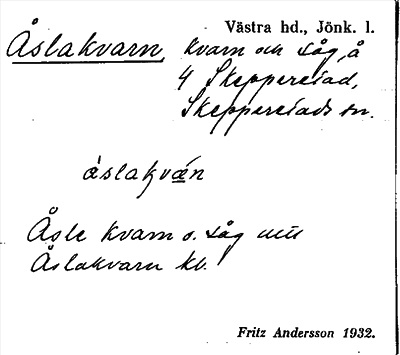 Västra hd., Jönk. l.
Åslakvarn, kvarn och såg, å
4 Skepperstad,
Skepperstads sn.
åslakvǽn
Åsle kvarn o. såg
Åslakvarn kb.
Fritz Andersson 1932.